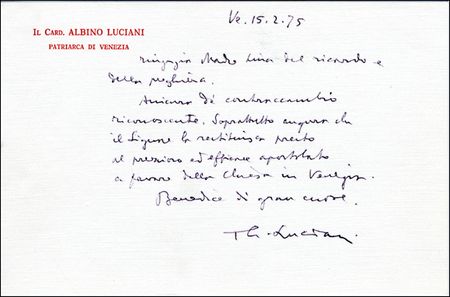 IL CARD. ALBINO LUCIANI
PATRIARCA DI VENEZIA
Ve. 15.2.75
ringrazia Madre Lina del ricordo e
della preghiera.
Assicura di contraccambio
riconoscente. Soprattutto augura che
il Signore la restituisca presto
al prezioso ed efficace apostolato
a favore della Chiesa in
Benedice di gran cuore.
Luciani